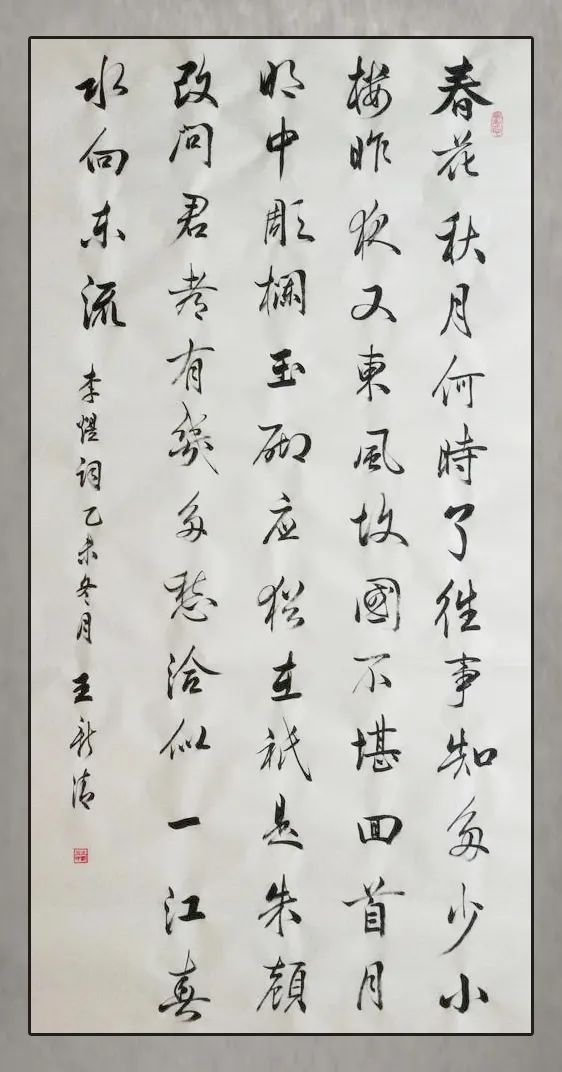 春花秋月何時了往事知多少小
樓昨夜又東風故國不堪回首月
明中彫欄玉砌应猶在祇是朱顔
改問君有幾多愁洽似一江春
水向东流
李煜詞乙未冬月王新清